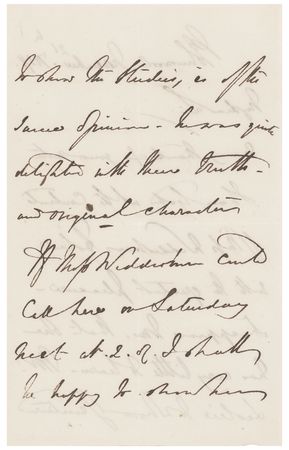 to show the Studies, is of the
same opinion - he was quite
delighted with their truth -
and original character
If Miss Wedderburn could
Call here on Saturday
next at. 2. I shall
be happy to show her